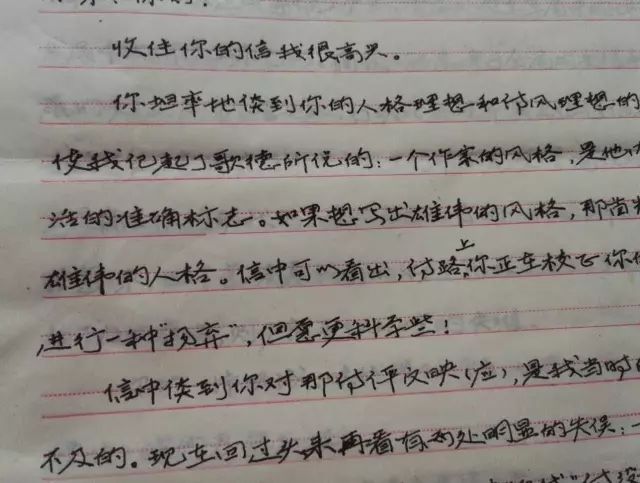 收住你的信我很高兴。
你坦率地谈到你的人格理想和诗风理想的
使我记起了歌德所说的：一个作家的风格，是他内
活的准确标志。如果想写出雄伟的风格，那首先
雄伟的人格。信中可以看出，诗路上，你正在校正你
进行一种"扬弃"，但愿更科学些！
信中谈到你对那诗评反映（应），是我当时
不及的。现在回过头来再看有两处明显的失误：一